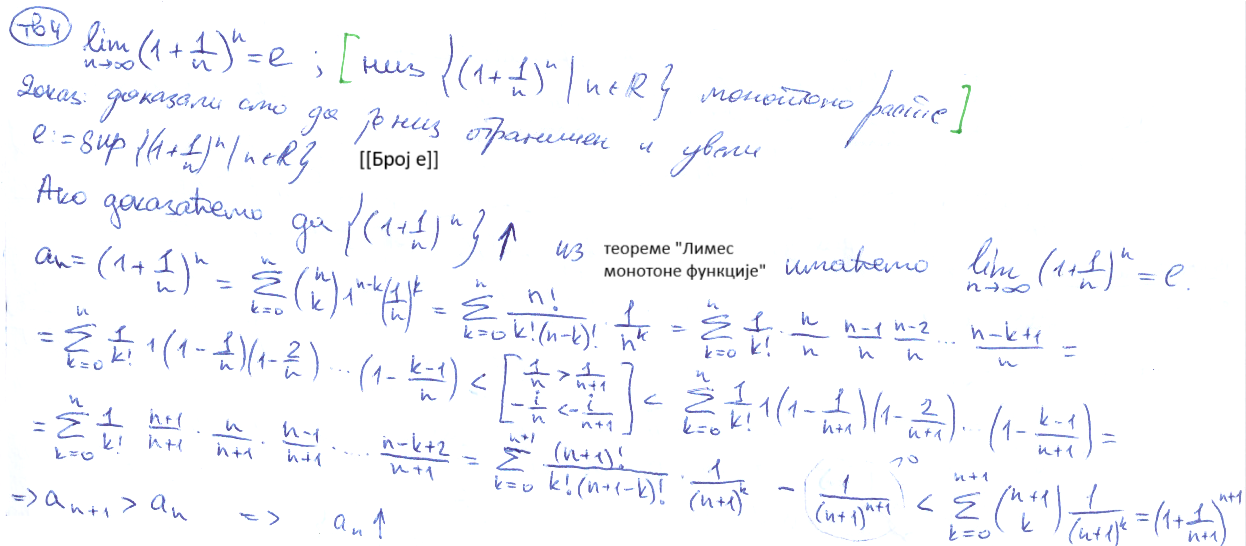 тв4 lim_{n→∞} (1 + 1/n)^n = e ; [ низ {(1 + 1/n)^n | n ∈ R} монотоно расте ]
Доказ: доказали смо да је низ ограничен и увели
e := sup {(1 + 1/n)^n | n ∈ R} [[Број е]]
Ако докажемо да {(1 + 1/n)^n} ↑ из теореме "Лимес монотоне функције" имаћемо lim_{n→∞} (1 + 1/n)^n = e.
a_n = (1 + 1/n)^n = ∑_{k=0}^{n} (n k) 1^{n-k} (1/n)^k = ∑_{k=0}^{n} n!/(k!(n-k)!) · 1/n^k = ∑_{k=0}^{n} 1/k! · n/n · (n-1)/n · (n-2)/n ... (n-k+1)/n =
= ∑_{k=0}^{n} 1/k! 1 (1 - 1/n)(1 - 2/n) ... (1 - (k-1)/n) < [ 1/n > 1/(n+1) ; -i/n < -i/(n+1) ] < ∑_{k=0}^{n} 1/k! 1 (1 - 1/(n+1))(1 - 2/(n+1)) ... (1 - (k-1)/(n+1)) =
= ∑_{k=0}^{n} 1/k! (n+1)/(n+1) · n/(n+1) · (n-1)/(n+1) ... (n-k+2)/(n+1) = ∑_{k=0}^{n+1} (n+1)!/(k!(n+1-k)!) · 1/(n+1)^k - 1/(n+1)^{n+1} < ∑_{k=0}^{n+1} (n+1 k) 1/(n+1)^k = (1 + 1/(n+1))^{n+1}
=> a_{n+1} > a_n => a_n ↑